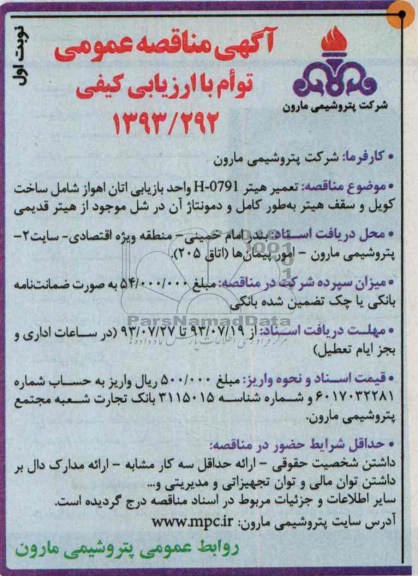 نوبت اول
آگهی مناقصه عمومی
توأم با ارزیابی کیفی
۱۳۹۳/۲۹۲
شرکت پتروشیمی مارون
• کارفرما: شرکت پتروشیمی مارون
• موضوع مناقصه: تعمیر هیتر H-0791 واحد بازیابی اتان اهواز شامل ساخت
کویل و سقف هیتر به‌طور کامل و دمونتاژ آن در شل موجود از هیتر قدیمی
• محل دریافت اسناد: بندر امام خمینی- منطقه ویژه اقتصادی- سایت۲-
پتروشیمی مارون - امور پیمان‌ها (اتاق ۲۰۵)
• میزان سپرده شرکت در مناقصه: مبلغ ۵۴/۰۰۰/۰۰۰ به صورت ضمانت‌نامه
بانکی یا چک تضمین شده بانکی
ParsNamadData
• مهلت دریافت اسناد: از ۹۳/۰۷/۱۹ تا ۹۳/۰۷/۲۷ (در ساعات اداری و
بجز ایام تعطیل)
• قیمت اسناد و نحوه واریز: مبلغ ۵۰۰/۰۰۰ ریال واریز به حساب شماره
۶۰۱۷۰۳۲۲۸۱ و شماره شناسه ۳۱۱۵۰۱۵ بانک تجارت شعبه مجتمع
پتروشیمی مارون.
• حداقل شرایط حضور در مناقصه:
داشتن شخصیت حقوقی - ارائه حداقل سه کار مشابه - ارائه مدارک دال بر
داشتن توان مالی و توان تجهیزاتی و مدیریتی و...
سایر اطلاعات و جزئیات مربوط در اسناد مناقصه درج گردیده است.
آدرس سایت پتروشیمی مارون: www.mpc.ir
روابط عمومی پتروشیمی مارون